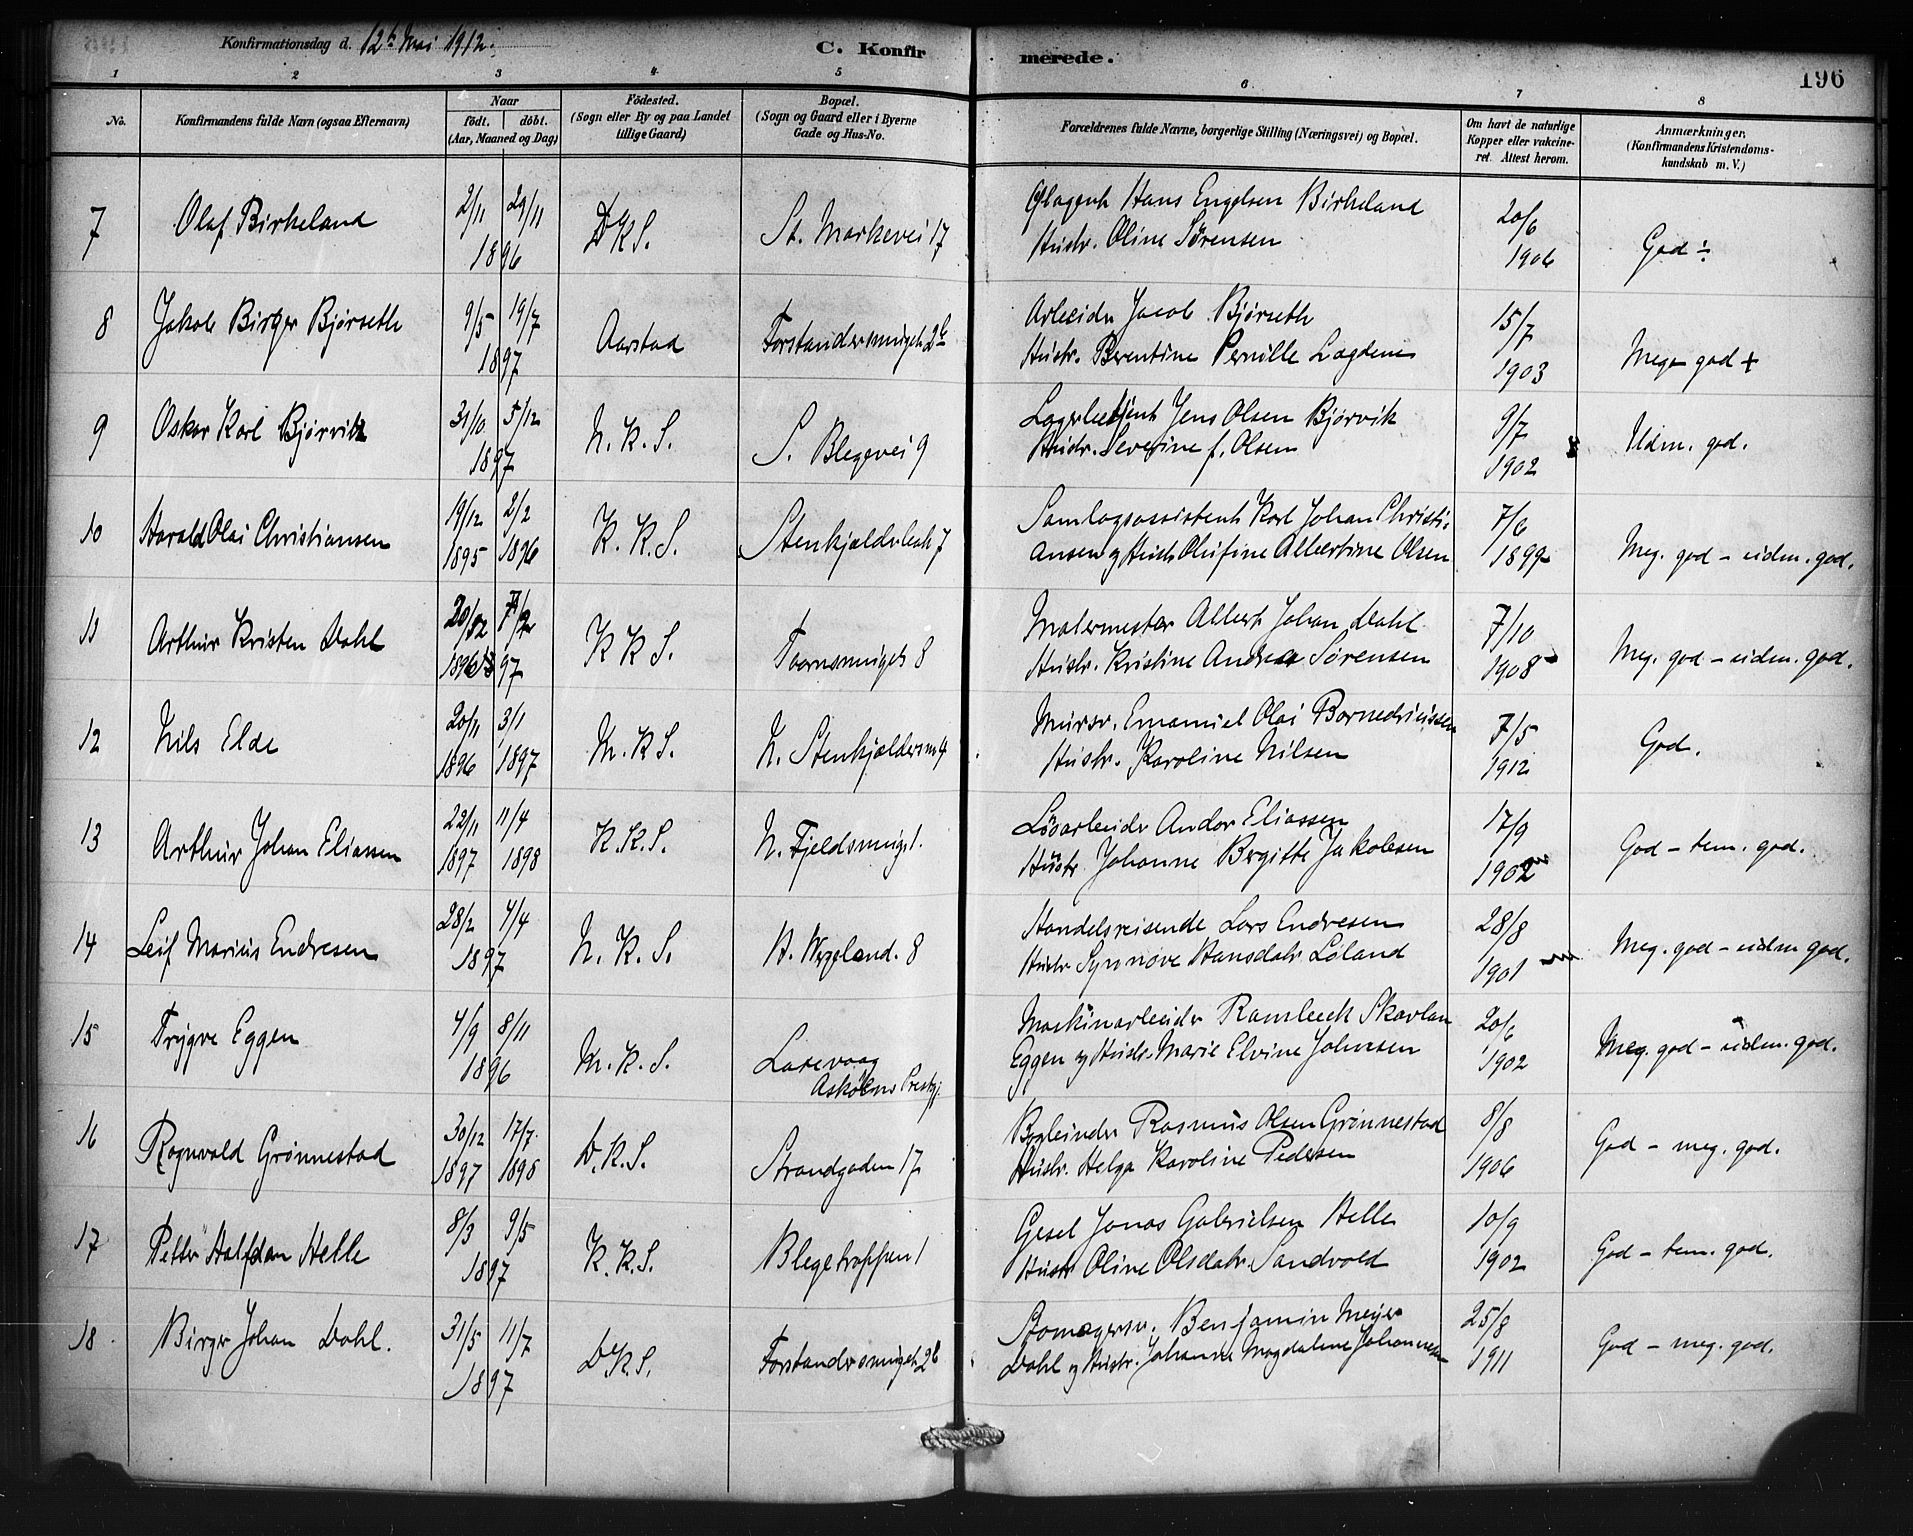 Konfirmationsdag d. 12te Mai 1912.
C. Konfirmerede.
196
1 2 3 4 5 6 7 8
No.
Konfirmandens fulde Navn (ogsaa Efternavn)
Naar
födt. döbt.
(Aar, Maaned og Dag)
Födested.
(Sogn eller By og paa Landet
tillige Gaard)
Bopæl.
(Sogn og Gaard eller i Byerne
Gade og Hus-No.
Forældrenes fulde Navne, borgerlige Stilling (Næringsvei) og Bopæl.
Om havt de naturlige
Kopper eller vakcine-
ret. Attest herom.
Anmærkninger.
(Konfirmandens Kristendoms-
kundskab m. V.)
7 Olaf Birkeland 2/11 29/11 1896 D.K.S. St. Markevei 17
Hans Engelsen Birkeland
Hustr. Oline Sørensen
20/6 1906 God ÷
8 Jakob Birger Bjørseth 9/5 19/7 1897 Aarstad Forstandersmuget 2b
Arbeider Jacob Bjørseth
Hustr. Berentine Pernille Lagdene
15/7 1903 Meget god +
9 Oskar Karl Bjørvik 31/10 5/12 1897 N.K.S. S. Blegevei 9
Lagerbetjent Jens Olsen Bjørvik
Hustr. Severine f. Olsen
9/7 1902 Udm. god.
10 Harald Olai Christiansen 19/12 1895 2/2 1896 K.K.S. Stenkjelderbak 7
Samlagsassistent Karl Johan Christi-
ansen og Hustr. Olufine Albertine Olsen
7/6 1899 Meg. god - udm. god.
11 Arthur Kristen Dahl 1896 97 K K S. Taarnsmuget 8
Malermester Albert Johan Dahl
Hustr. Kristine Andrea Sørensen
7/10 1908 Meg. god - udm. god.
12 Nils Elde 20/11 1896 3/1 1897 M.K.S. N. Stenkjeldersm 4
Mursv. Emanuel Olai
Hustr. Karoline Nilsen
7/5 1912 God.
13 Arthur Johan Eliassen 22/11 1897 11/4 1898 K.K.S. N. Fjeldsmuget 1.
Løsarbeider Andor Eliassen
Hustr. Johanne Bergitte Jakobsen
17/9 1902 God - tem. god.
14 Leif Marius Endresen 28/2 4/4 1897 N.K.S. H. Wergeland. 8
Handelsreisende Lars Endresen
Hustr. Synnøve Hansdatr. Løland
28/8 1901 Meg. god - udm god.
15 Trygve Eggen 4/9 8/11 1896 M.K.S. Laxevaag
Askøens Prestgj.
Maskinarbeider Rambech Skavlan
Eggen og Hustr. Marie Elvine Johnsen
20/6 1902 Meg. god - udm. god.
16 Ragnvald Grønnestad 30/12 1897 17/7 1898 D.K.S. Strandgaden 17
Bogbinder Rasmus Olsen Grønnestad
Hustr. Helga Karoline Pedersen
8/8 1906 God - meg. god.
17 Petter Halfdan Helle 8/3 9/5 1897 K.K.S. Blegetrappen 1
Gesel Jonas Gabrielsen Helle
Hustr Oline Olsdatr. Sandvold
10/9 1902 God - tem. god.
18 Birger Johan Dahl. 31/5 11/7 1897 D.K.S. Forstandersmuget 2b
Skomagersv. Benjamin Meyer
Dahl og Hustr. Johanna Magdalene Johannesen
25/8 1911 God - meg. god.